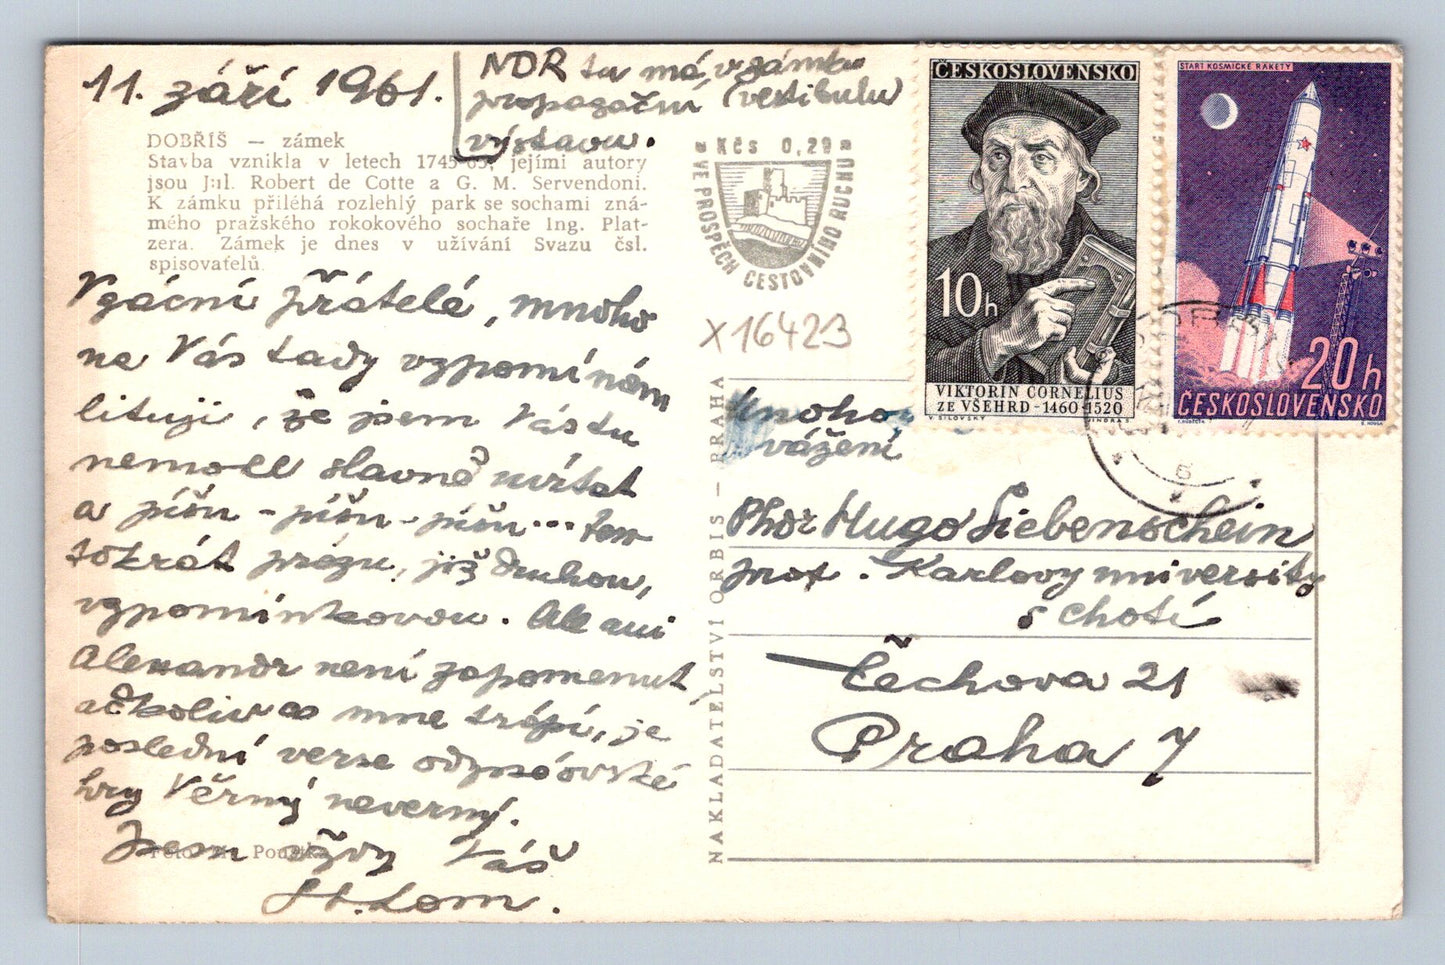 11. září 1961.
NDR tu má v zámku
propagační (vestibulu)
výstavu.
DOBŘÍŠ — zámek
Stavba vznikla v letech 1745-65, jejími autory
jsou Jul. Robert de Cotte a G. M. Servendoni.
K zámku přiléhá rozlehlý park se sochami zná-
mého pražského rokokového sochaře Ing. Plat-
zera. Zámek je dnes v užívání Svazu čsl.
spisovatelů.
Vzácní přátelé, mnoho
na Vás tady vzpomínám
lituji, že jsem Vás tu
nemohl slavně uvítat
a píšu - píšu - píšu ... ten
tokrát prózu, již druhou,
vzpomínkovou. Ale ani
Alexandr není zapomenut,
ačkoliv mne trápí, je
poslední verse
hry Věrný nevěrný.
Jsem vždy Váš
St. Lom.
Foto
Kčs 0,20
VE PROSPĚCH CESTOVNÍHO RUCHU
X16423
ČESKOSLOVENSKO
10h
VIKTORIN CORNELIUS
ZE VŠEHRD - 1460-1520
V. SILOVSKÝ JINDRA S.
START KOSMICKÉ RAKETY
20h
ČESKOSLOVENSKO
NAKLADATELSTVÍ ORBIS — PRAHA
Mnoho
vážení
Phdr Hugo Siebenschein
prof. Karlovy university
s chotí
Čechova 21
Praha 7